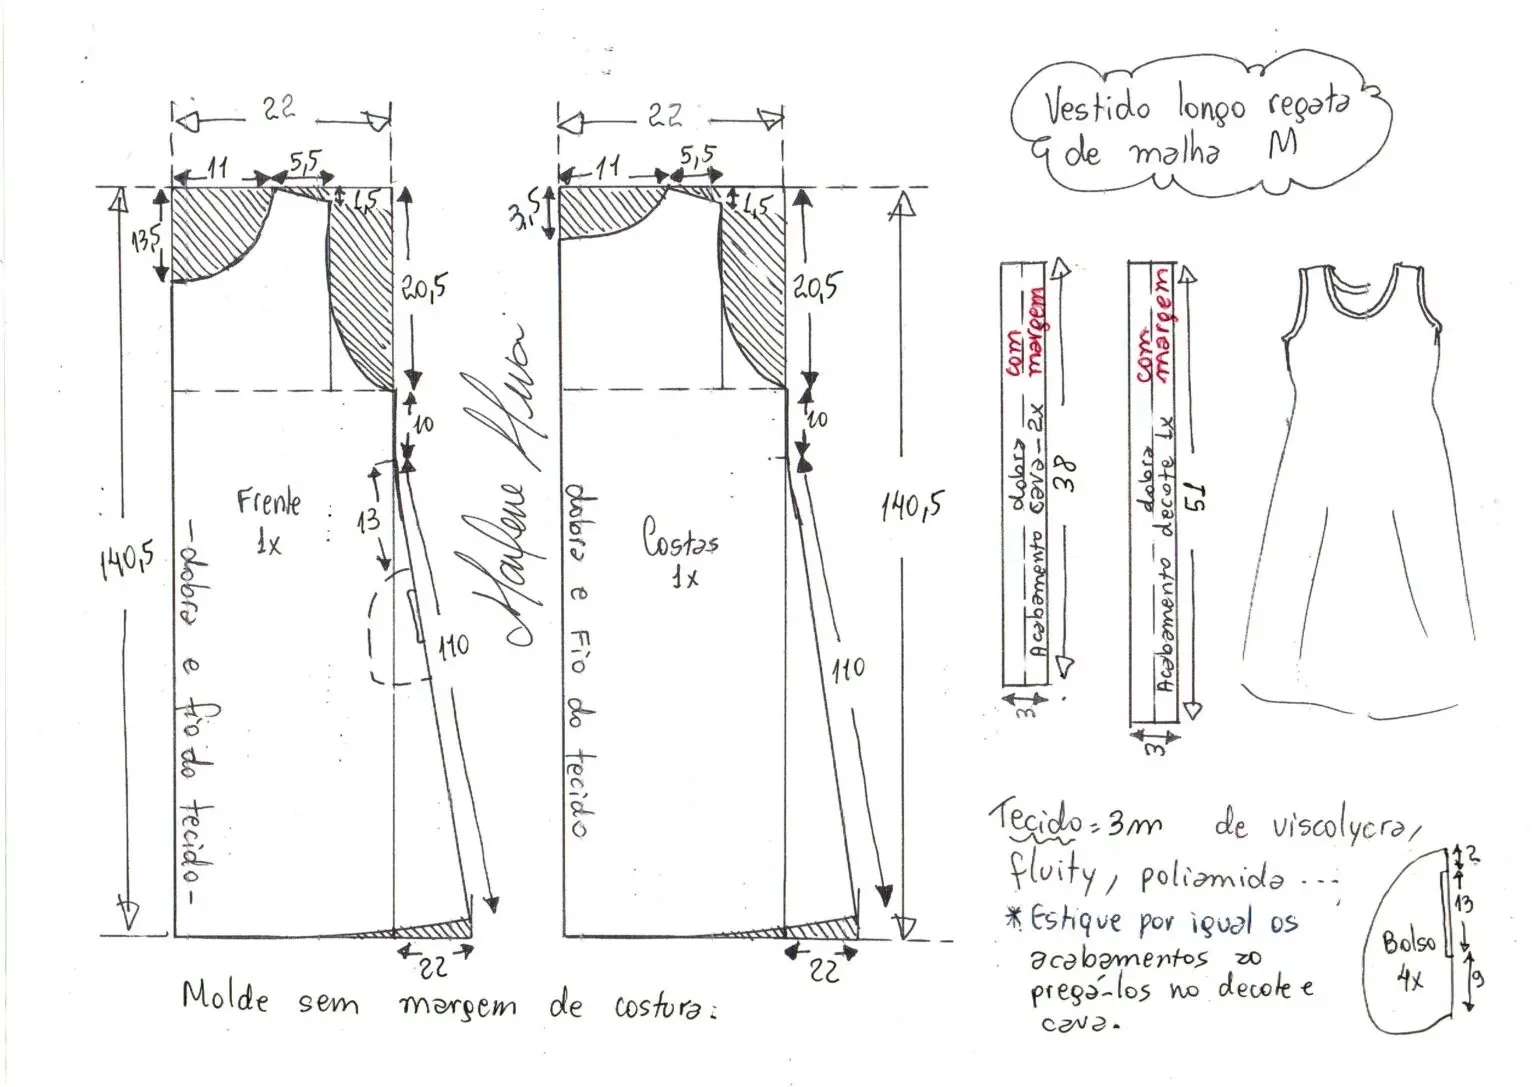 Vestido longo regata
de malha M
22
11
5,5
1,5
13,5
20,5
10
13
110
140,5
22
Frente
1x
-dobra e fio do tecido-
22
11
5,5
1,5
3,5
20,5
10
110
140,5
22
Costas
1x
dobra e Fio do tecido
Molde sem margem de costura.
com
margem
dobra
Acabamento cava-2x
38
3
com
margem
dobra
Acabamento decote 1x
51
3
Tecido = 3m de viscolycra,
fluity, poliamida ...
* Estique por igual os
acabamentos ao
pregá-los no decote e
cava.
Bolso
4x
2
13
9